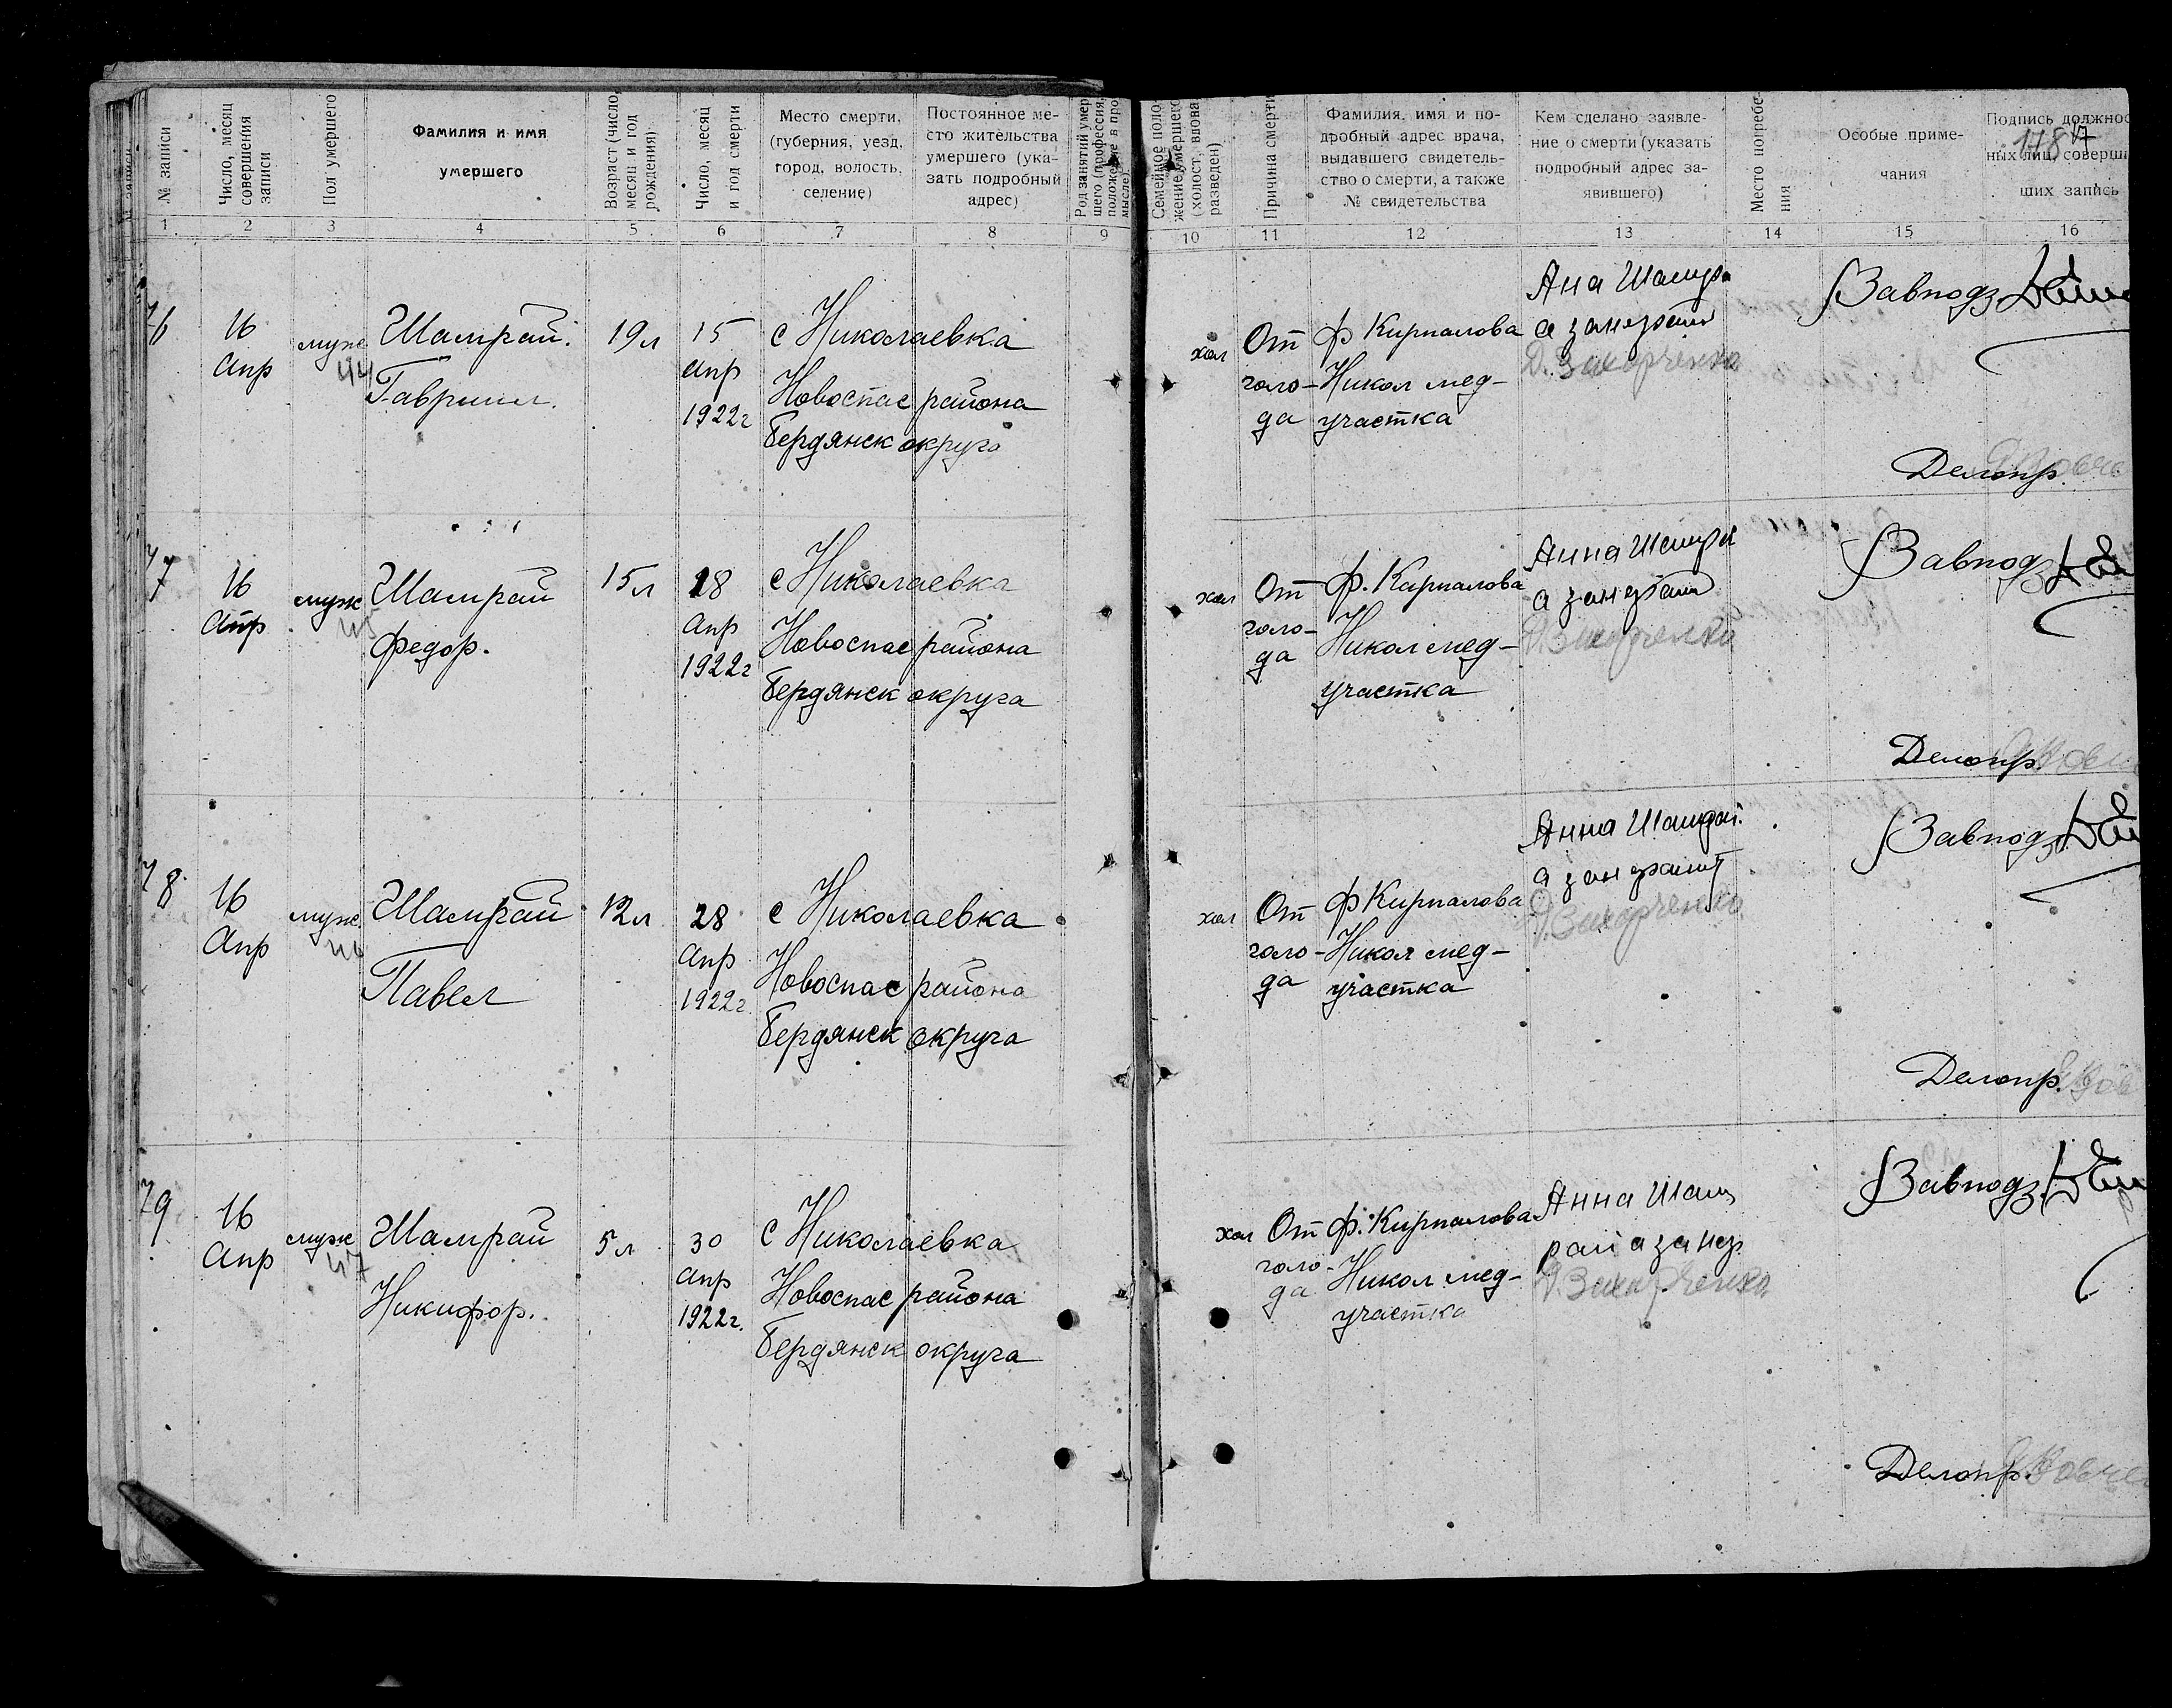 № записи
Число, месяц совершения записи
Пол умершего
Фамилия и имя
умершего
Возраст (число, месяц и год рождения)
Число, месяц и год смерти
Место смерти,
(губерния, уезд,
город, волость,
селение)
Постоянное ме-
сто жительства
умершего (ука-
зать подробный
адрес)
Род занятий умер-
шего (профессия,
положение в про-
мысле).
Семейное поло-
жение умершего
(холост, вдова
разведен)
Причина смерти
Фамилия, имя и по-
дробный адрес врача,
выдавшего свидетель-
ство о смерти, а также
№ свидетельства
Кем сделано заявле-
ние о смерти (указать
подробный адрес за-
явившего)
Место погребе-
ния
Особые приме-
чания
Подпись должнос
ных лиц, соверши
ших запись
178
1 2 3 4 5 6 7 8 9 10 11 12 13 14 15 16
76
16
апр
муж
44
Шамрай
Гавриил.
19л
15
апр
1922г
с Николаевка
Новоспас района
Бердянск округа
хол
От
голо-
да
Ф Кирпалова
Никол мед-
участка
Ана Шамра
а
Завподз
Делопр.
77
16
Апр
муж
45
Шамрай
Федор.
15л
18
апр
1922г
с Николаевка
Новоспас района
Бердянск округа
хол
От
голо-
да
Ф. Кирпалова
Никол мед-
участка
Анна Шамра
а
Завподз
Делопр.
78
16
Апр
муж
46
Шамрай
Павел
12л
28
апр
1922г.
с Николаевка
Новоспас района
Бердянск округа
хол
От
голо-
да
Ф Кирпалова
Никол мед-
участка
Анна Шамрай
а
Завподз
Делопр.
79
16
Апр
муж
47
Шамрай
Никифор.
5л
30
апр
1922г.
с Николаевка
Новоспас района
Бердянск округа
хол
От
голо-
да
Ф. Кирпалова
Никол мед-
участка
Анна Шам
рай а за нер
Завподз.
Делопр.